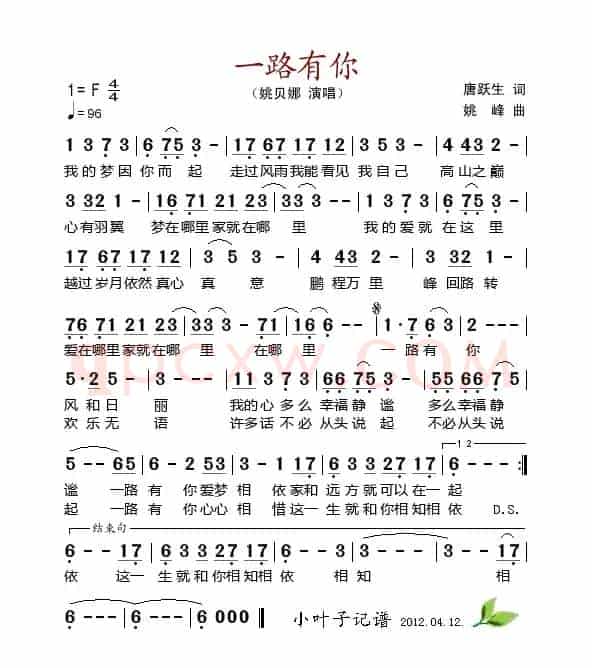 一路有你
1=F 4/4
（姚贝娜 演唱）
唐跃生 词
♩=96
姚 峰 曲
1 3 7 3 | 6 75 3 - | 17 67 17 12 | 3 5 3 - | 4 43 2 - |
我的梦因 你而 起 走过风雨我能看见 我自己 高山之巅
3 32 1 - | 16 71 21 23 | 33 3 - - | 1 3 7 3 | 6 75 3 - |
心有羽翼 梦在哪里家就在哪 里 我的爱就 在这 里
17 67 17 12 | 3 5 3 - | 4 43 2 - | 3 32 1 - |
越过岁月依然真心 真 意 鹏程万里 峰回路转
76 71 21 23 | 53 3 - 71 | 16 6 - - | 1·7 6 3 | 2 - - - |
爱在哪里家就在哪 里 在哪 里 一路有 你
5·2 5 - | 3 - - - | 11 3 7 3 | 66 75 3 - | 55 66 7 5 |
风和日 丽 我的心多么 幸福静 谧 多么幸福静
欢乐无 语 许多话不必 从头说 起 不必从头说
5 - - 65 | 6 - 2 53 | 3 - 3 17 | 6 3 3 17 17 | 6 - - - :||
谧 一路 有 你爱梦 相 依家和 远方就可以在一 起
起 一路 有 你心心 相 惜这一 生就和你相知相 依 D.S.
1 2
结束句
6 - - 17 | 6 3 3 17 17 | 6 - - 3 | 3 - - - | 3 - - 17 |
依 这一 生就和你相知相 依 相 知 相
6 - - - | 6 - - - | 6 000 ||
小叶子记谱 2012.04.12.
qpcxw.COM